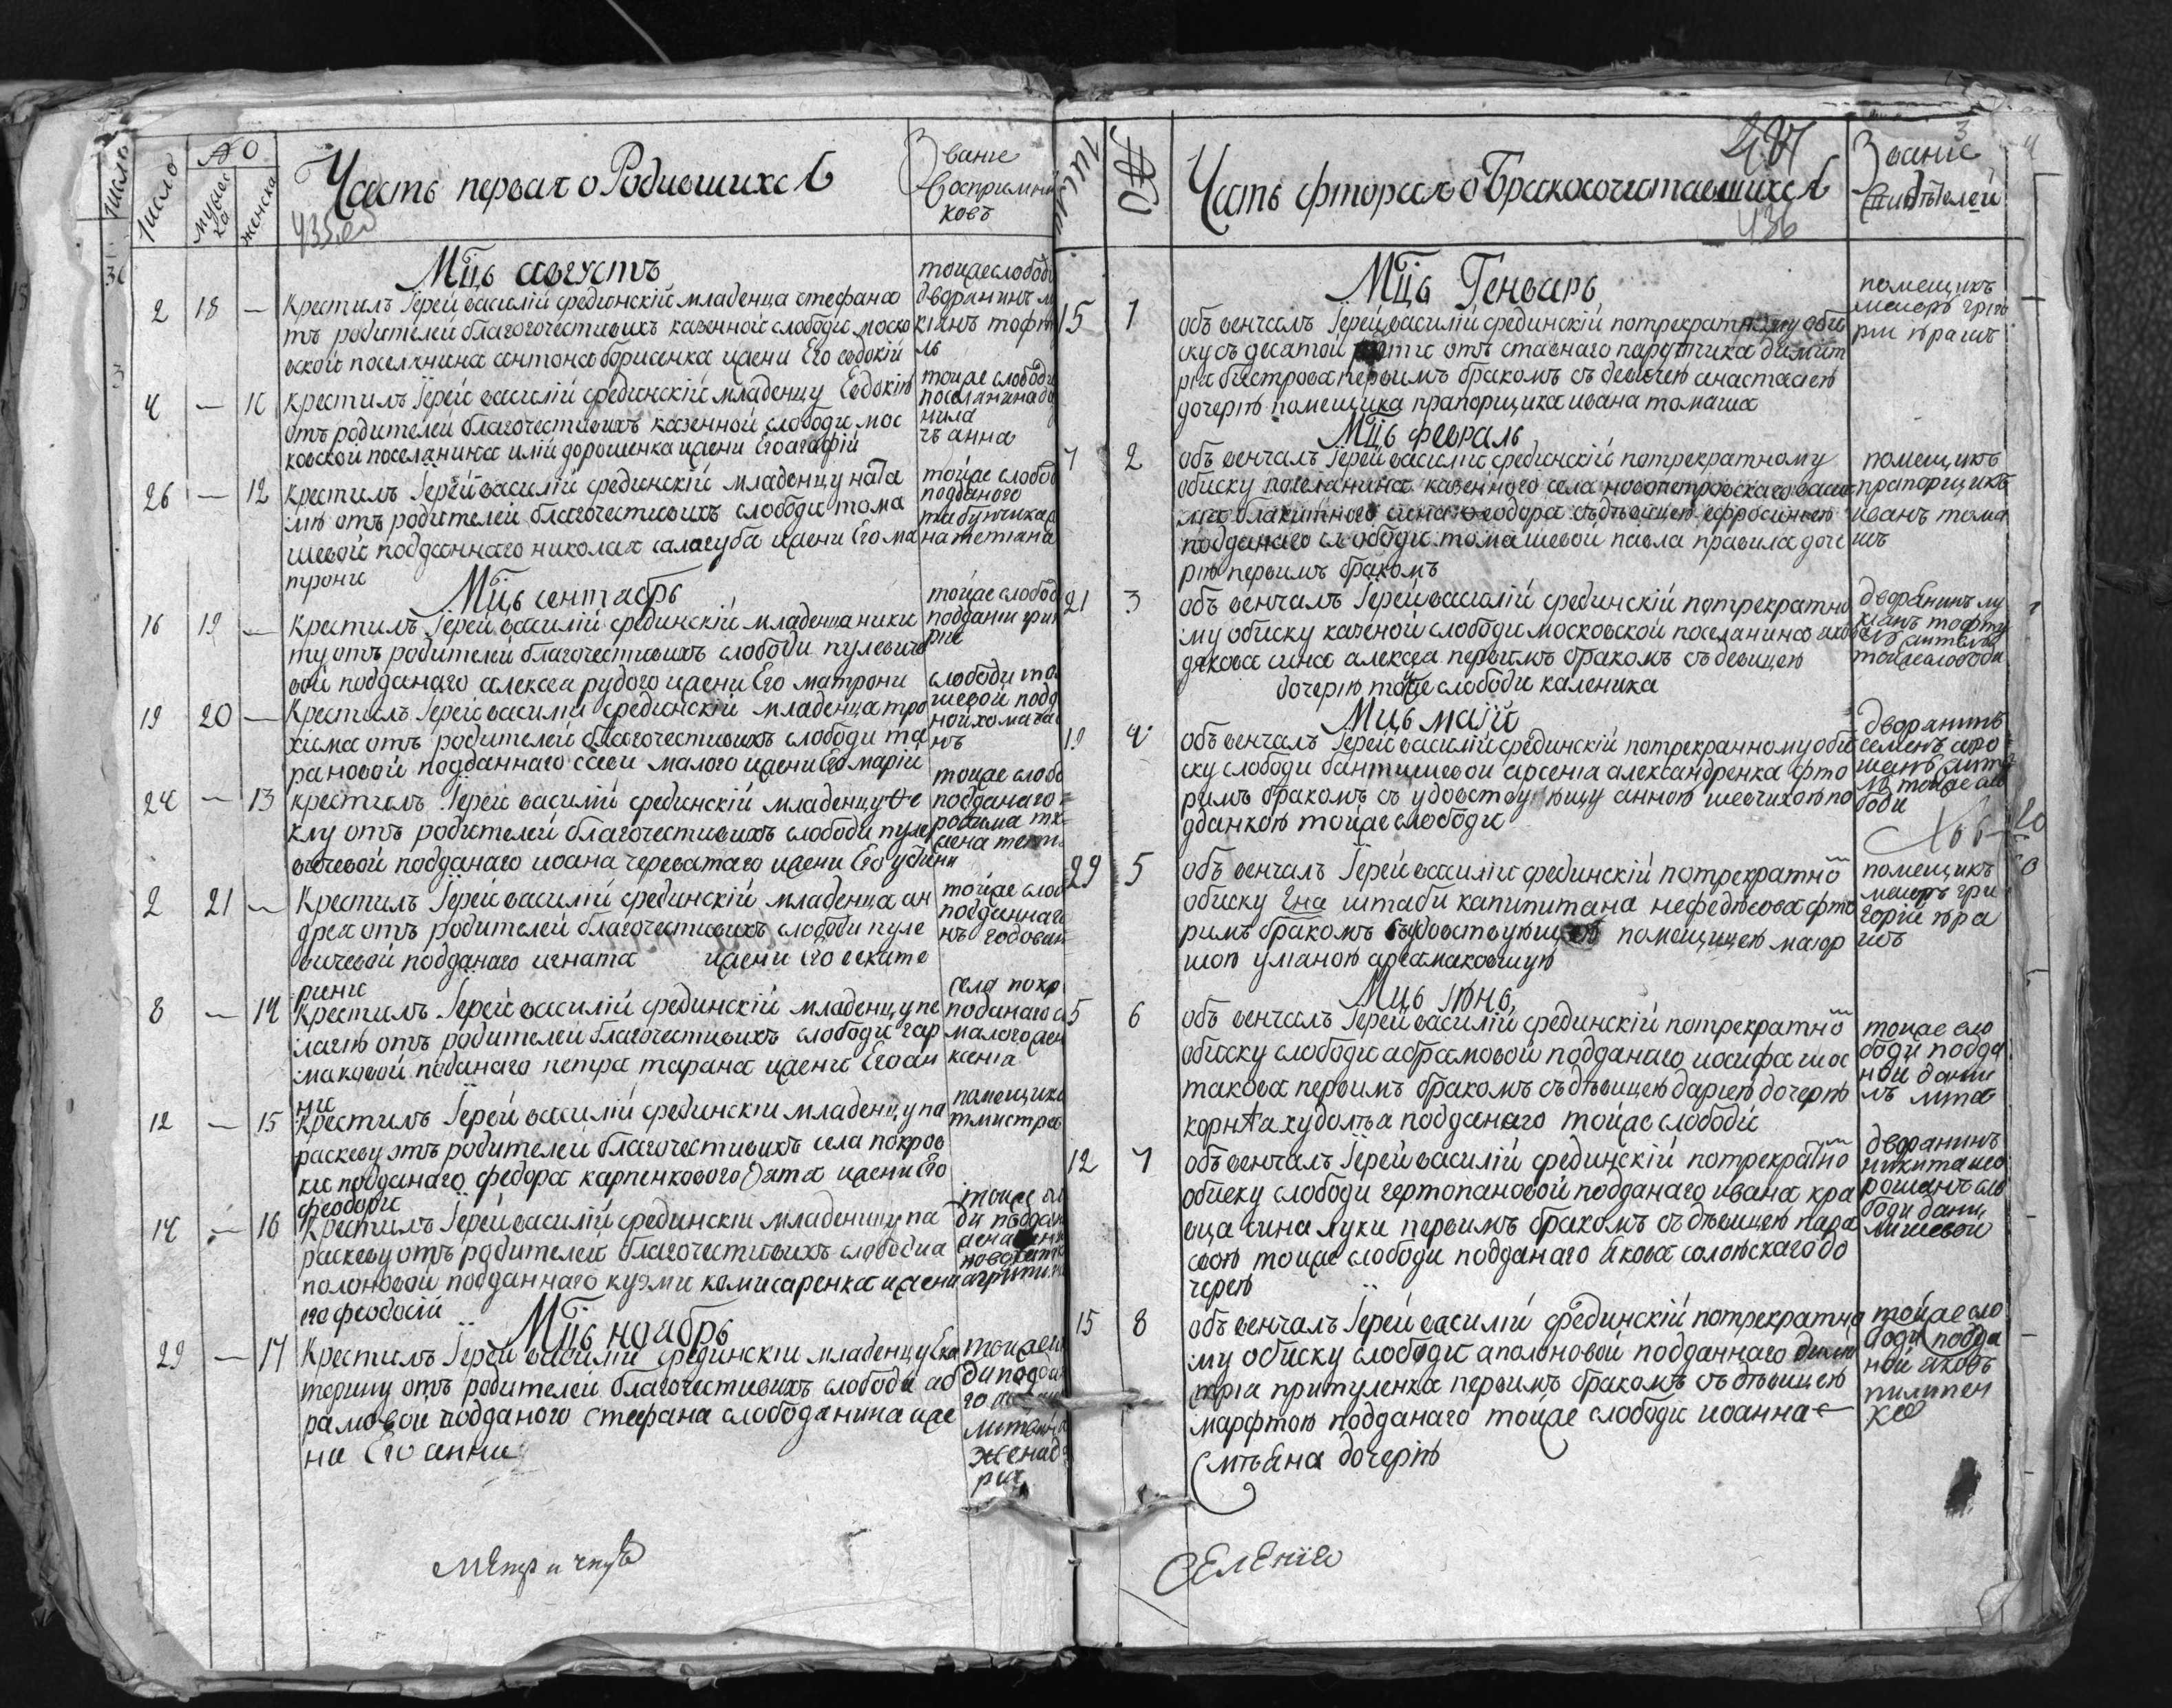 Число
№
мужеска
женска
Часть первая о Родившихся
Званіе
Восприемниковъ
435
Мцъ августъ
2 18 — Крестилъ Іерей василій срединскій младенца стефана
тъ родителей благочестивихъ казенной слободи моско
вской поселянина антона борисенка жени Его евдокій
тойже слободи
дворянинъ
4 — 11 крестилъ Іерей василій срединскій младенцу Евдокію
отъ родителей благочестивихъ казенной слободи мос
ковской поселянина илій дорошенка жени Его агафій
тойже слободи
поселянина
анна
26 — 12 крестилъ Іерей василій срединскій младенцу ната
лію отъ родителей благочестивихъ слободи тома
шевой подданнаго николая салогуба жени Его ма
трони
тойже слобод
подданого
Мцъ сентабрь
16 19 — Крестилъ Іерей василій срединскій младенца ники
ту отъ родителей благочестивихъ слободи пулевиче
вой подданаго алексея рудого жени Его матрони
тойже слобод
19 20 — Крестилъ Іерей василій срединскій младенца тро
хима отъ родителей благочестивихъ слободи та
рановой подданнаго сави малого жени Его марій
слободи тома
шевой подда
24 — 13 крестилъ Іерей василій срединскій младенцу ѳе
клу отъ родителей благочестивихъ слободи пуле
вичевой подданаго иоана череватаго жени Его устини
тойже слобо
подданаго
2 21 — Крестилъ Іерей василій срединскій младенца ан
дрея отъ родителей благочестивихъ слободи пуле
вичевой подданаго игната жени Его екате
рини
тойже слоб
подданнаго
8 — 14 Крестилъ Іерей василій срединскій младенцу пе
лагію отъ родителей благочестивихъ слободи гар
маковой поданаго петра тарана жени Его ан
ни
села покр
поданаго
малого жен
ксенія
12 — 15 Крестилъ Іерей василій срединскій младенцу па
раскеву отъ родителей благочестивихъ села покров
ки подданаго федора карпенкового зята жени Его
феодори
помещика
14 — 16 Крестилъ Іерей василій срединскій младенцу па
раскеву отъ родителей благочестивихъ слободи а
полоновой подданнаго кузми комисаренка жени
его феодосій
тойже сл
Мцъ ноабрь
29 — 17 Крестилъ Іерей василій срединскій младенцу Ека
терину отъ родителей благочестивихъ слободи аб
рамовой подданого стефана слободаника же
на Его анни
жена
метричнуѣ
Число
№
Часть фторая о Бракосочитавшихся
Званіе
Свидѣтелей
436
Мцъ Генварь
15 1 объ венчалъ Іерей василій срединскій потрекратному оби
ску съ десатой роти отъ ставнаго паручика димит
рія бистрова первимъ бракомъ съ девицею анастасіею
дочерію помещика прапорщика ивана томаша
помещикъ
меиоръ григо
рій
Мцъ февраль
7 2 объ венчалъ Іерей василій срединскій потрекратному
обиску поселанина казенного села новопетровскаго васи
лія блакитного сина феодора съ дѣвицею ефросиніею
подданаго слободи томашевой павла правила доче
рію первимъ бракомъ
помещикъ
прапорщикъ
иванъ тома
шъ
21 3 объ венчалъ Іерей василій срединскій потрекратно
му обиску казеной слободи московской поселанина
дякова сина алексеа первимъ бракомъ съ девицею
дочерію тойже слободи каленика
дворянинъ лу
кіанъ
тойже слободи
Мцъ маій
19 4 объ венчалъ Іерей василій срединскій потрекранному оби
ску слободи бантишевой арсенія александренка фто
римъ бракомъ съ удовствующу анною шевчихою по
дданкою тойже слободи
дворянинъ
семенъ
шанъ
тойже сло
боди
29 5 объ венчалъ Іерей василій срединскій потрекратно
обиску Гна штаби капитана нефедиева фто
римъ бракомъ съ удовствующею помещицею маіор
шою уліаною аргамаковшую
помещикъ
меиоръ гри
горій
Мцъ Іюнь
5 6 объ венчалъ Іерей василій срединскій потрекратно
обиску слободи абрамовой подданаго иосифа шос
такова первимъ бракомъ съ дѣвицею даріею дочерію
корнѣа худолѣа подданаго тойже слободи
тойже сло
боди подда
ной дани
лъ
12 7 объ венчалъ Іерей василій срединскій потрекратно
обиску слободи чертопановой подданаго ивана кра
вца сина луки первимъ бракомъ съ дѣвицею пара
свою тойже слободи подданаго якова солонскаго до
черею
дворанинъ
никита
рошанъ сло
боди дани
лишевой
15 8 объ венчалъ Іерей василій срединскій потрекратно
му обиску слободи аполоновой подданнаго дими
трія притуленка первимъ бракомъ съ дѣвицею
марфтою подданаго тойже слободи иоанна
смѣяна дочерію
тойже сло
боди подда
ной яковъ
пилипен
ко
Селеніе